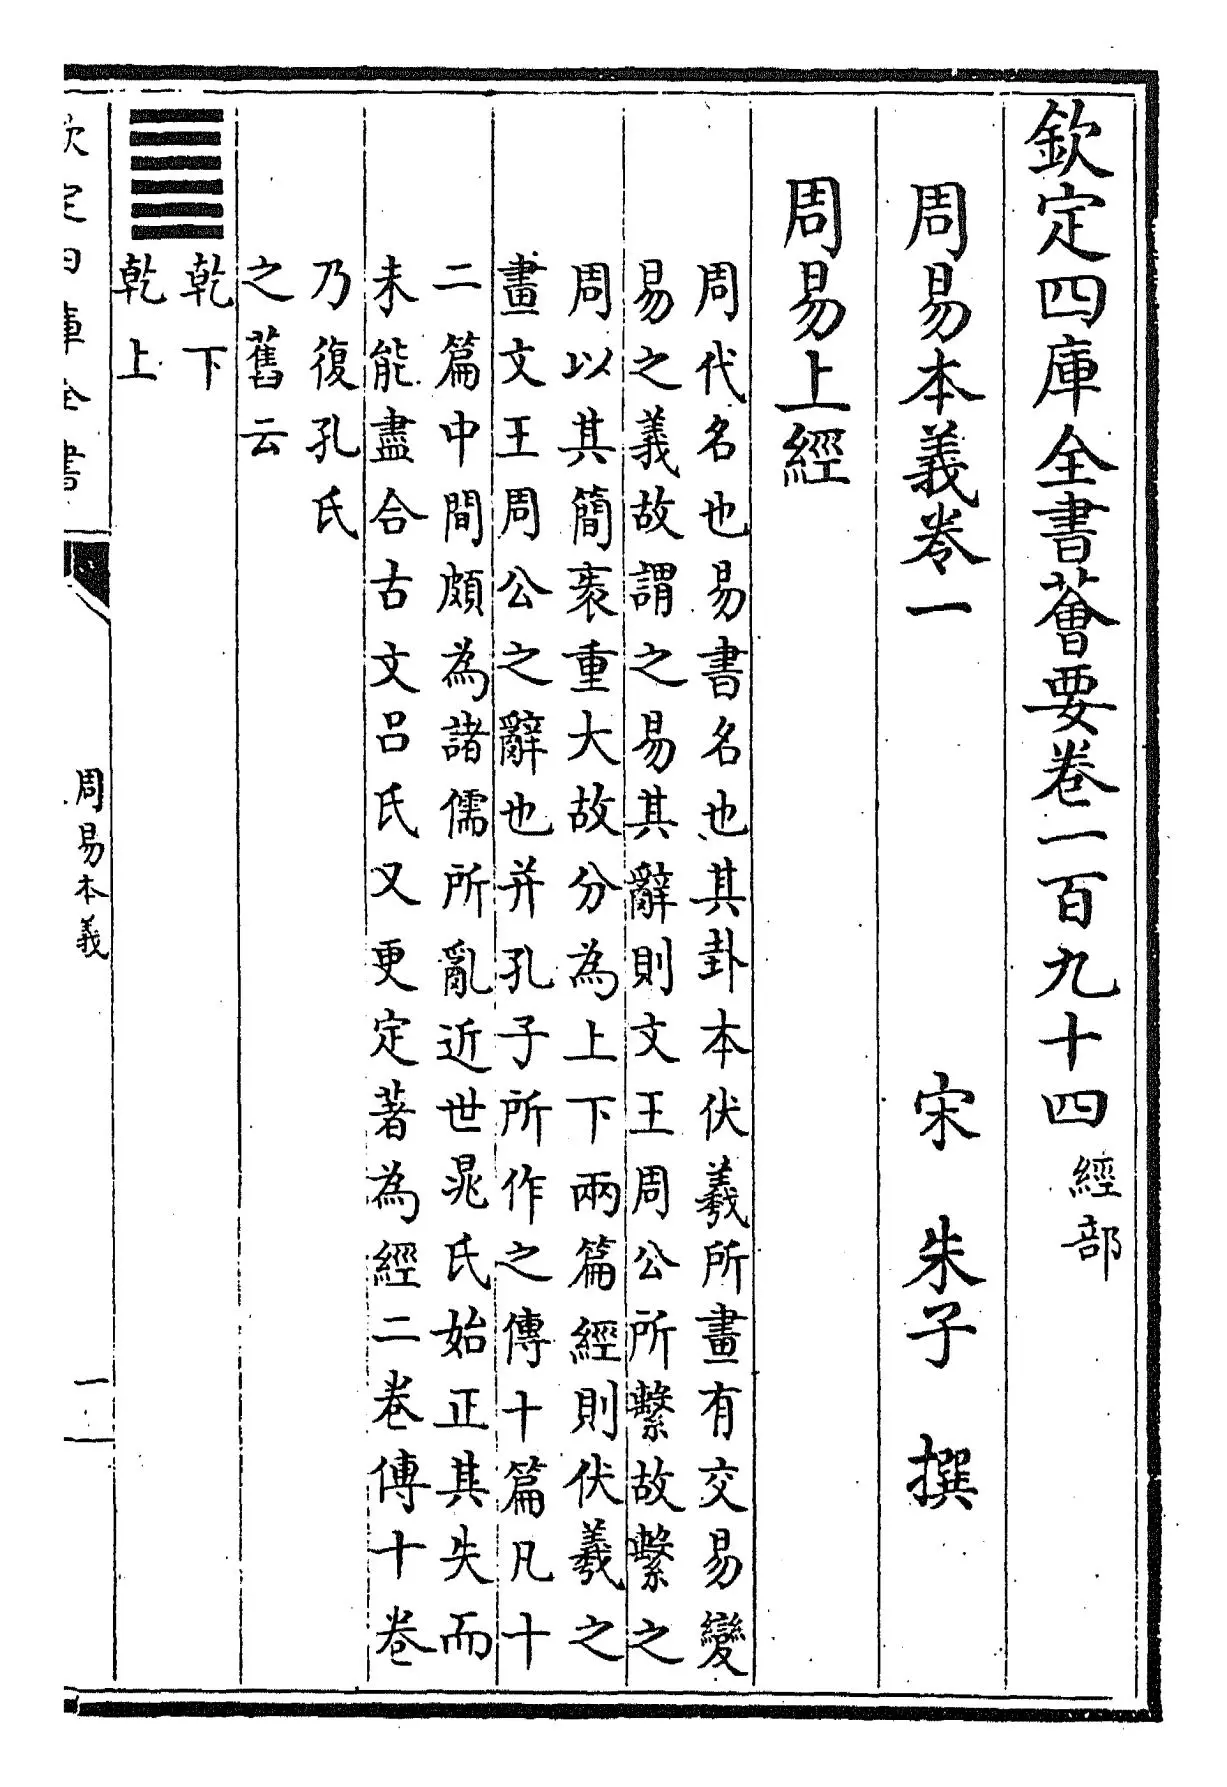 欽定四庫全書薈要卷一百九十四 經部
周易本義卷一
宋 朱子 撰
周易上經
周代名也易書名也其卦本伏羲所畫有交易變
易之義故謂之易其辭則文王周公所繫故繫之
周以其簡袠重大故分為上下兩篇經則伏羲之
畫文王周公之辭也并孔子所作之傳十篇凡十
二篇中間頗為諸儒所亂近世晁氏始正其失而
未能盡合古文呂氏又更定著為經二卷傳十卷
乃復孔氏
之舊云
乾下
乾上
欽定四庫全書
周易本義
一